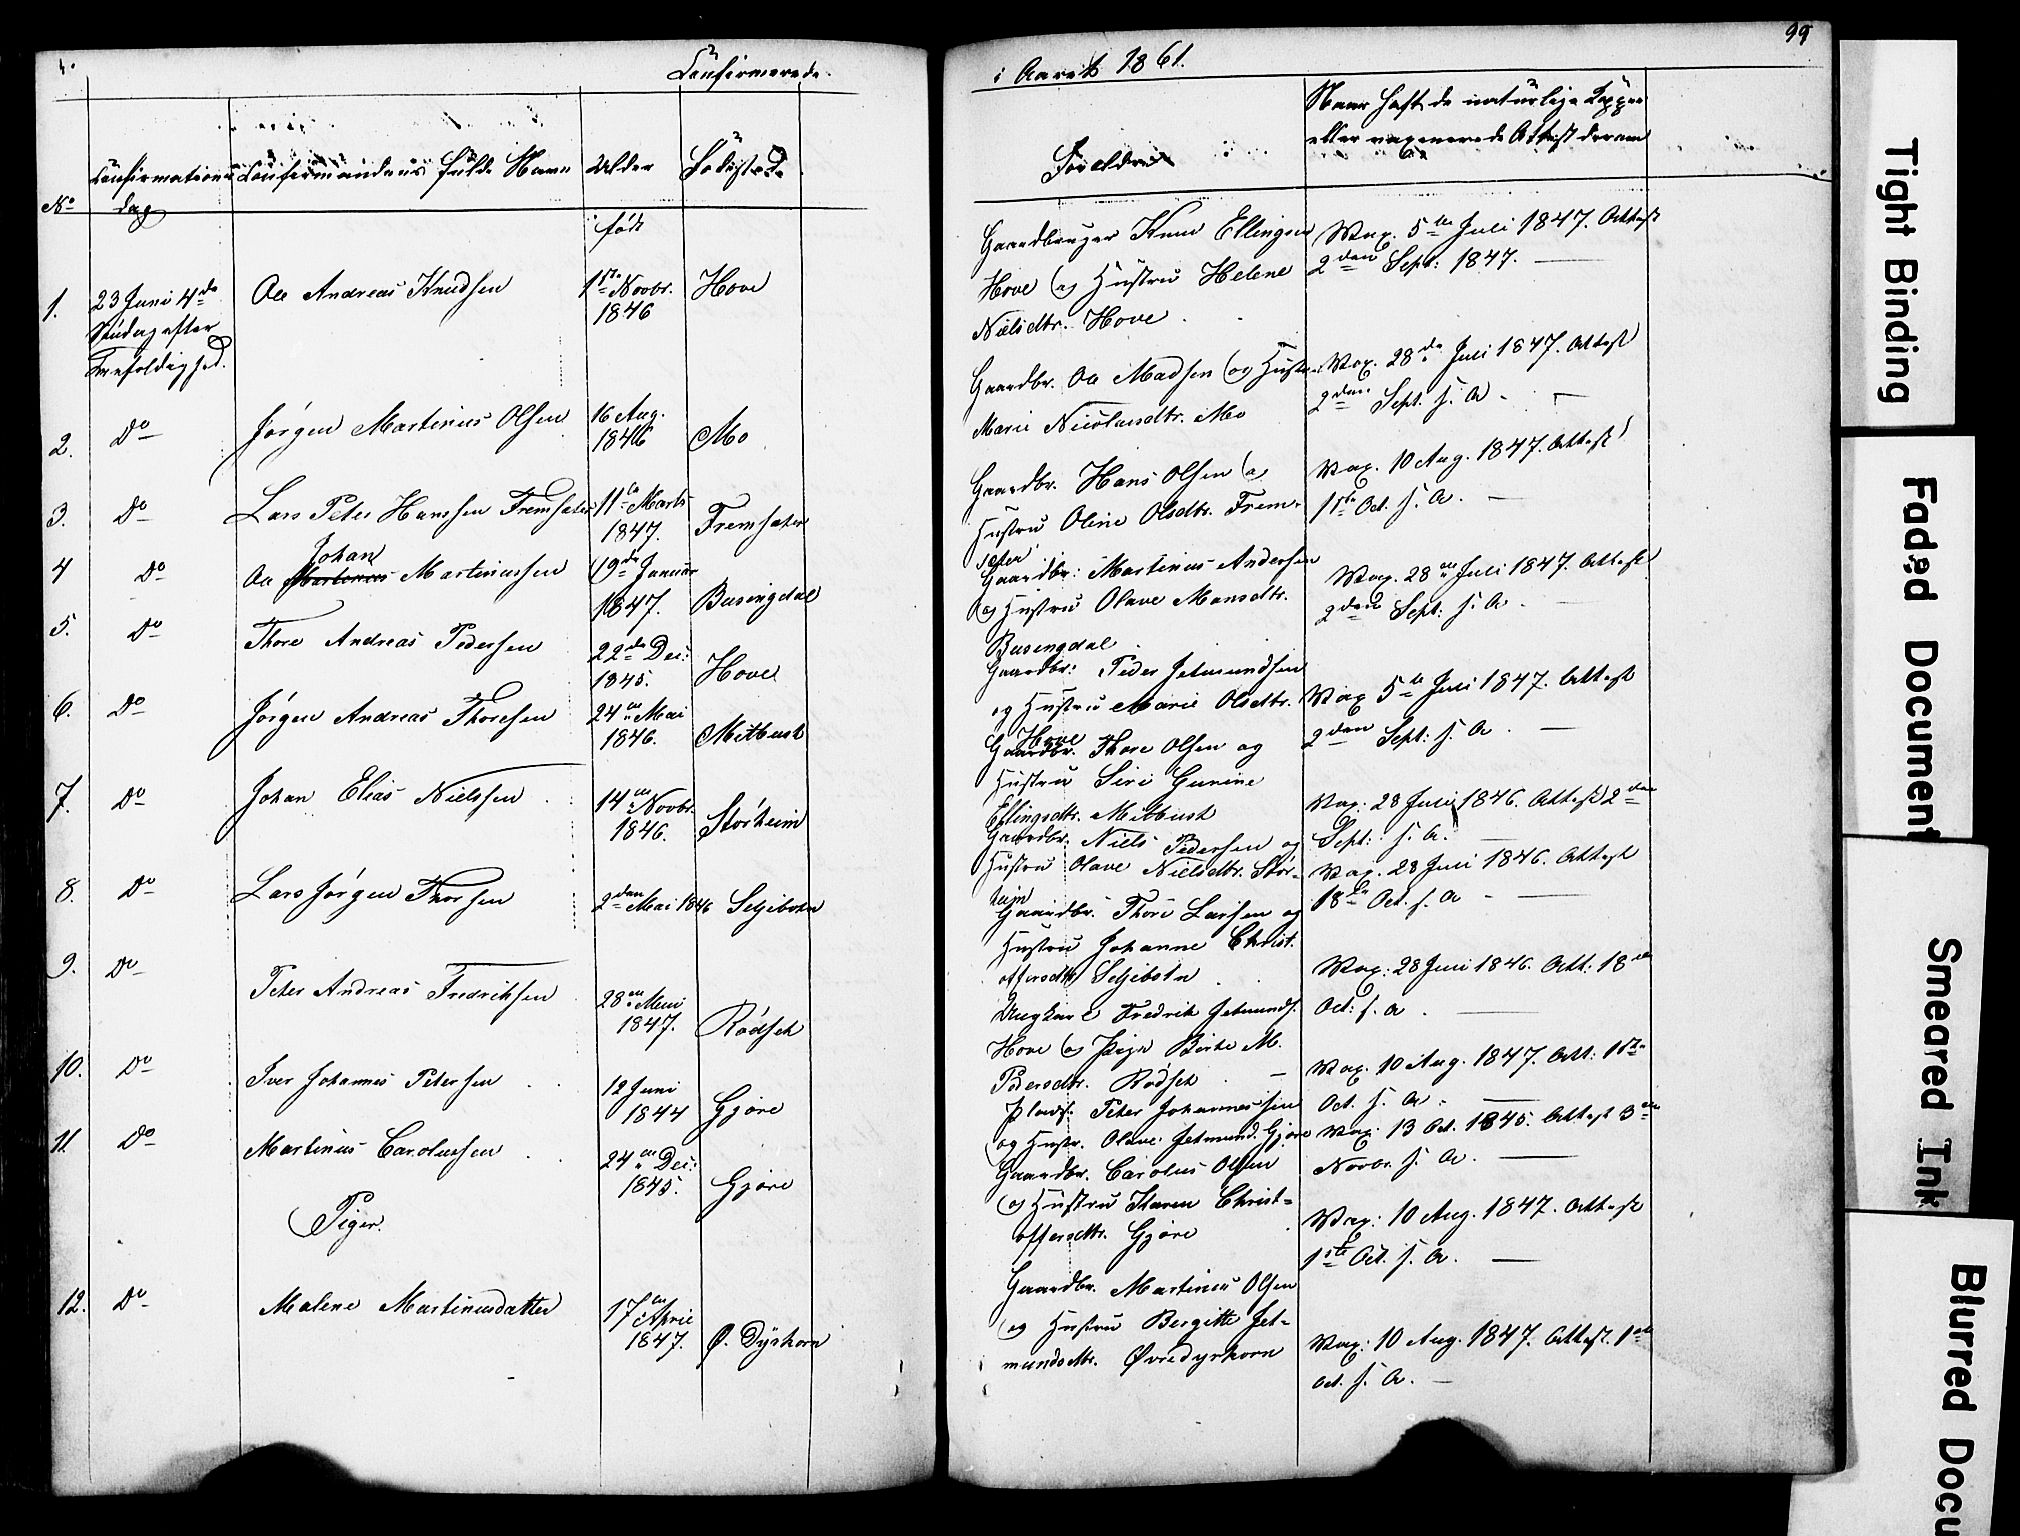 Confirmerede
No
Confirmations
dag
Confirmandens fulde Navn
Alder
Fødested
født
1.
23 Juni 4de
Søndag efter
Trefoldighed.
Ole Andreas Knudsen
1ste Novbr.
1846
Hove
2.
Do
Jørgen Martinus Olsen
16 Aug.
1846
Mo
3.
Do
Lars Peter Hanssen Fremsæter
11te Marts
1847.
Fremsæter
4
Do
Johan
Ole Martinus Martinussen
19de Januar
1847.
Busengdal
5.
Do
Thore Andreas Pedersen
22de Dec:
1845.
Hove
6.
Do
Jørgen Andreas Thoresen
24en Mai
1846.
Mitbust
7.
Do
Johan Elias Nielssen
14en Novbr.
1846.
Størheim
8.
Do
Lars Jørgen Thorsen
2den Mai 1846
Seljebotn
9.
Do
Peter Andreas Fredriksen
28en
1847.
Rødset
10.
Do
Iver Johannes Petersen
12 Juni
1844
Gjøre
11
Do
Martinus Carolussen
24en Dec:
1845.
Gjøre
Piger.
12.
Do
Malene Martinusdatter
17en April
1847.
Ø. Dyrkorn
i Aaret 1861.
99
Forældre
Naar havt de naturlige Kopper
eller vaxinerede Attest derom
Gaardbruger Knud Ellingsen
Hove og Hustru Helene
Nielsdtr. Hove
Vax. 5te Juli 1847. Attest
2den Sept: 1847.
Gaardbr. Ole Madsen og Hustru
Marie Nicolaisdtr. Mo
Vax. 28de Juli 1847. Attest
2den Sept. s. A.
Gaardbr. Hans Olsen og
Hustru Oline Olsdtr. Frem-
sæter
Vax. 10 Aug. 1847. Attest
1ste Oct. s. A.
Gaardbr: Martinus Andersen
og Hustru Olave Monsdtr.
Busengdal
Vax. 28en Juli 1847. Attest
2den Sept: s. A.
Gaardbr: Peder Jetmundsen
og Hustru Marie Olsdtr.
Hove
Vax 5te Juli 1847. Attest
2den Sept: s. A.
Gaardbr. Thore Olsen og
Hustru Siri Gunine
Ellingsdtr. Mitbust
Vax: 28 Juli 1846. Attest 2den
Sept: s. A.
Gaardbr. Niels Pedersen og
Hustru Olave Nielsdtr. Stør-
heim
Vax. 28 Juni 1846. Attest
18de Oct. s. A
Gaardbr. Thore Larsen og
Hustru Johanne Christ.
offersdtr Seljebotn
Vax: 28 Juni 1846. Att: 18de
Oct: s. A.
Ungkarl Fredrik Jetmunds.
Hove og Pige Birte M.
Pedersdtr. Rødset
Vax. 10 Aug. 1847. Att: 1ste
Oct. s. A.
Plads. Peter Johannessen
og Hustr. Olave Jetmund. Gjøre
Vax: 13 Oct. 1845. Attest 3en
Novbr. s. A.
Gaardbr. Carolus Olsen
og Hustru Karen Christ-
offersdtr. Gjøre
Vax: 10 Aug. 1847. Attest
1ste Oct. s. A.
Gaardbr. Martinus Olsen
og Hustru Bergitte Jet-
mundsdtr. Øvredyrkorn
Vax: 10 Aug. 1847. Attest. 1ste
Oct. s. A.
Tight Binding
Faded Document
Smeared Ink
Blurred Docu